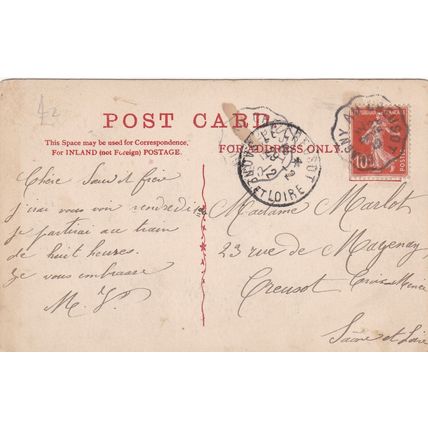 POST CARD
This Space may be used for Correspondence,
For INLAND (not Foreign) POSTAGE.
FOR ADDRESS ONLY
Chère
J'irai vous voir vendredi
Je partirai au train
de huit heures.
Je vous embrasse
M.
Madame Marlot
23 rue de Magenay
Creusot
Saône et Loire
10
POSTES
ET LOIRE